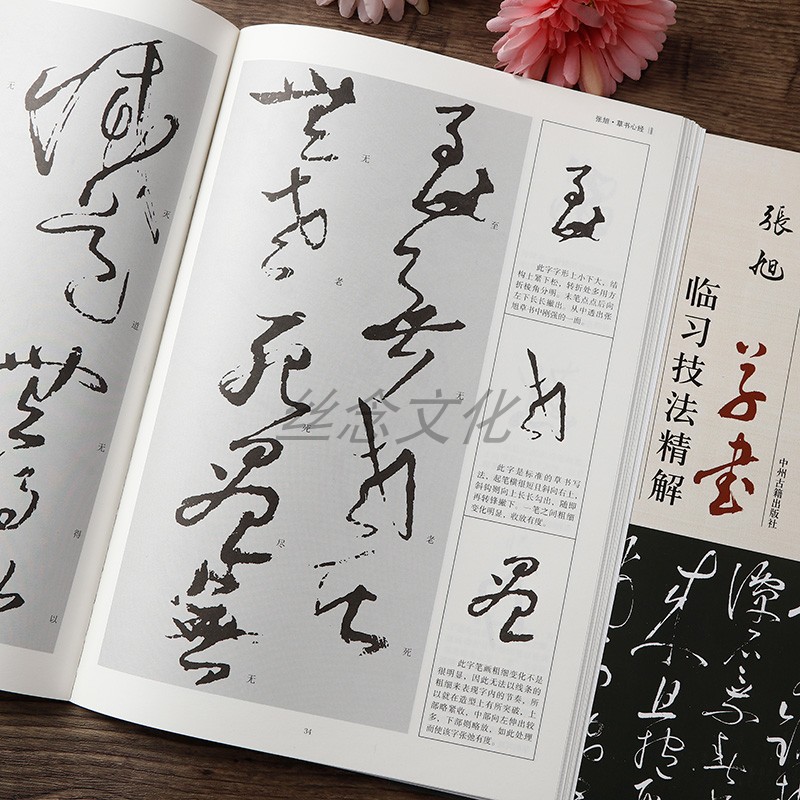 张旭·草书心经
至
无
老
死
无
老
死
尽
无
此字字形上小下大，结
构上紧下松，转折处多用方
折棱角分明。末笔点点后向
左下长长撇出。从中透出张
旭草书中刚强的一面。
此字是标准的草书写
法，起笔横很短且斜向右上，
斜钩则向上长长勾出，随即
再转锋撇下。一笔之间粗细
变化明显，收放有度。
此字笔画粗细变化不是
很明显，因此无法以线条的
粗细来表现字内的节奏，所
以就在造型上有所突破，上
部略紧收，中部向左伸出较
多，下部则略放，如此处理
而使该字张弛有度。
34
灭
道
无
得
以
无
張旭
草書
临习技法精解
中州古籍出版社
丝念文化